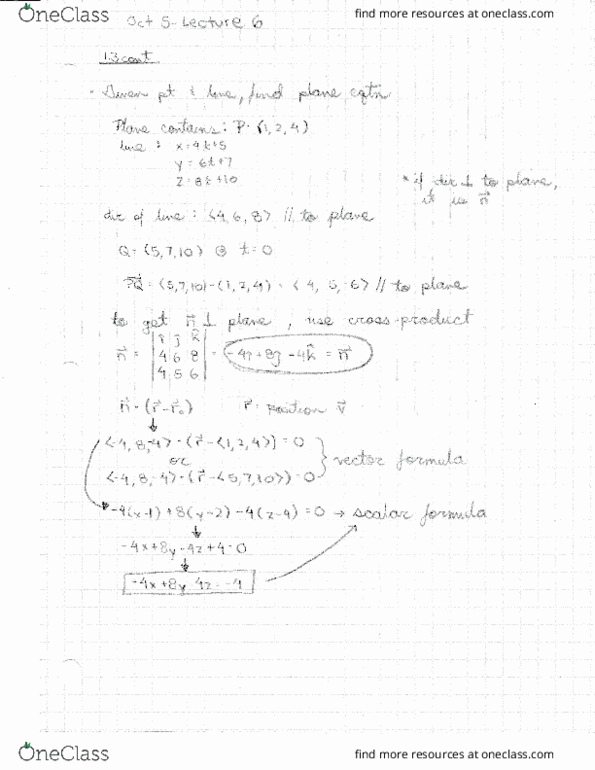 OneClass
find more resources at oneclass.com
Oct 5 - Lecture 6
1.3 cont.
· Given pt & line, find plane eqtn
Plane contains: P = (1, 2, 4)
line : x = 4t+5
y = 6t+7
z = 8t+10
* if dir ⊥ to plane,
it is n⃗
dir of line : <4, 6, 8> // to plane
Q = (5, 7, 10) @ t = 0
P⃗Q = (5, 7, 10) - (1, 2, 4) = <4, 5, 6> // to plane
to get n⃗ ⊥ plane, use cross-product
n⃗ = | î ĵ k̂ |
| 4 6 8 | = -4î + 8ĵ - 4k̂ = n⃗
| 4 5 6 |
n⃗ · (r⃗ - r⃗₀) r⃗ = position v⃗
<-4, 8, -4> · (r⃗ - <1, 2, 4>) = 0
or } vector formula
<-4, 8, -4> · (r⃗ - <5, 7, 10>) = 0
-4(x-1) + 8(y-2) - 4(z-4) = 0 → scalar formula
-4x + 8y - 4z + 4 = 0
-4x + 8y - 4z = -4
OneClass
find more resources at oneclass.com